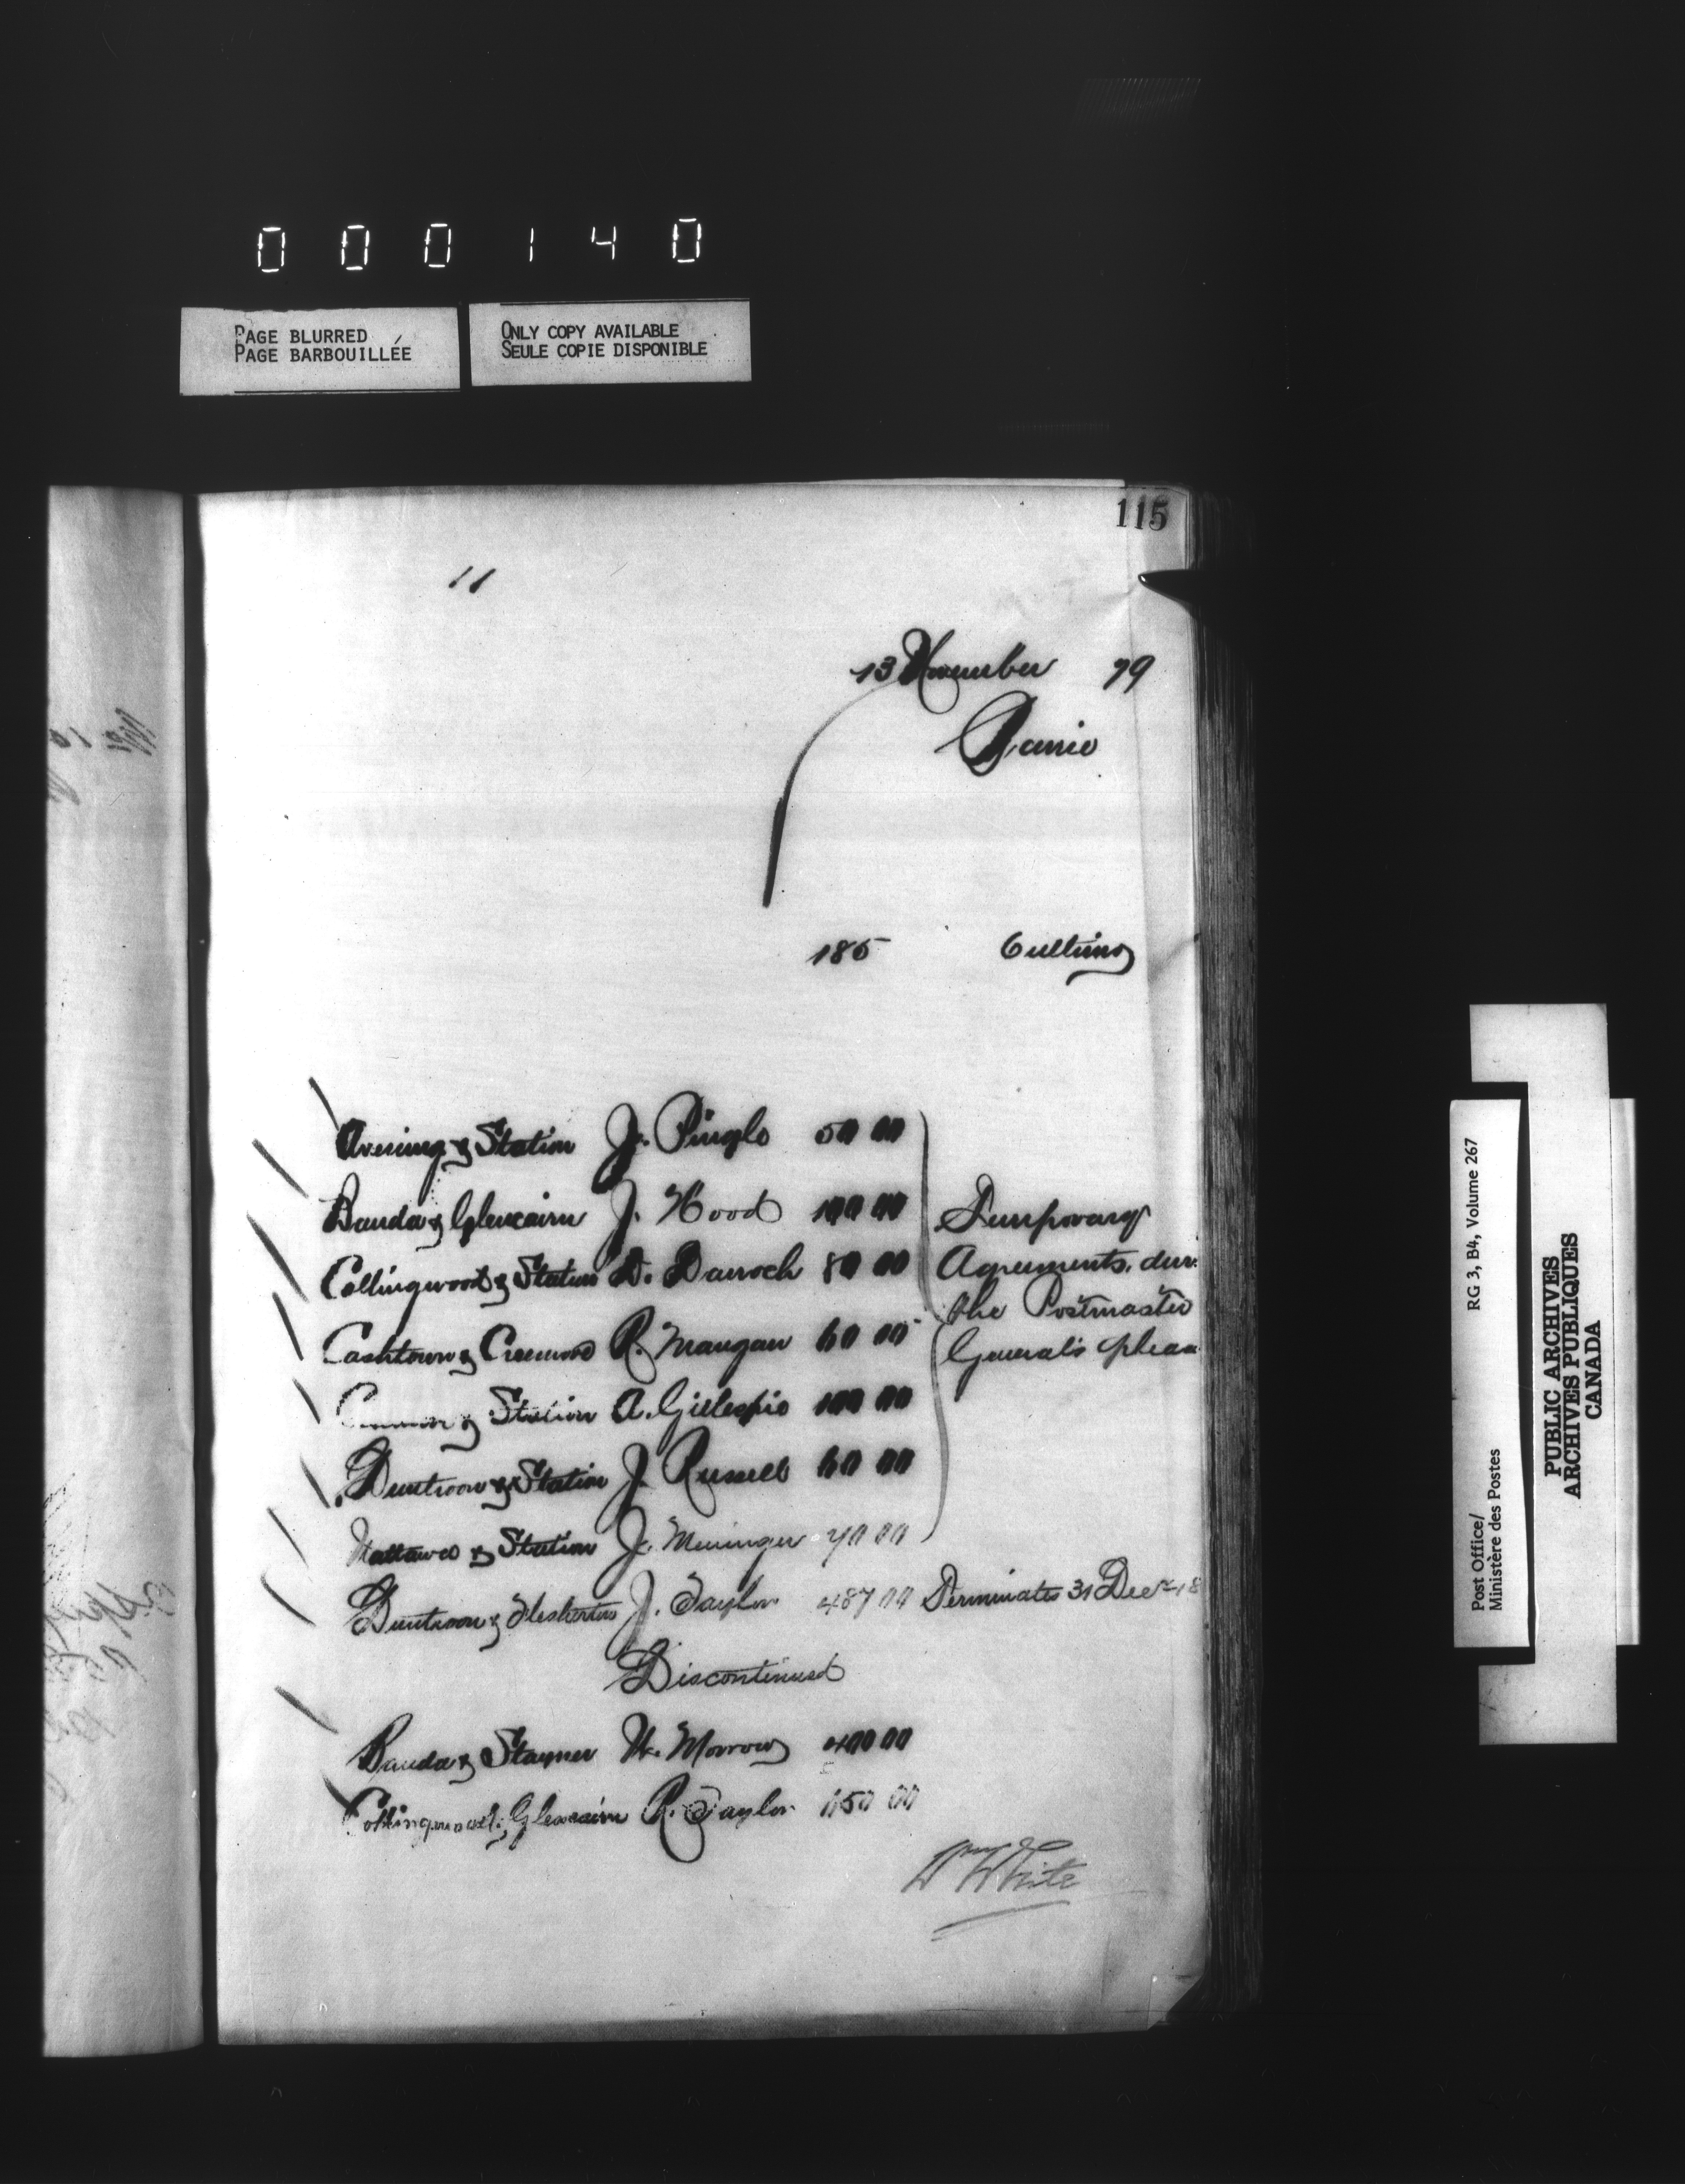 000140
PAGE BLURRED
PAGE BARBOUILLÉE
ONLY COPY AVAILABLE
SEULE COPIE DISPONIBLE
115
11
13 November 79
Barrie
185
Avening & Station J. Pingle 50 00
Banda & Glencairn J. Hood 100 00
Collingwood & Station D. Darroch 80 00
Cashtown & Creemore R. Mangan 60 00
& Station A. Gillespie 100 00
Duntroon & Station J. Russell 60 00
Nottawa & Station J. Meninger 70 00
Temporary
Agreements, dur
the Postmaster
General's pleas
Duntroon & Flesherton J. Taylor 487 00 Terminates 31 Decr 18
Discontinued
Banda & Stayner W. Morrow 400 00
Collingwood & Glencairn R. Taylor 650 00
Wm White
Post Office/
Ministère des Postes
RG 3, B4, Volume 267
PUBLIC ARCHIVES
ARCHIVES PUBLIQUES
CANADA